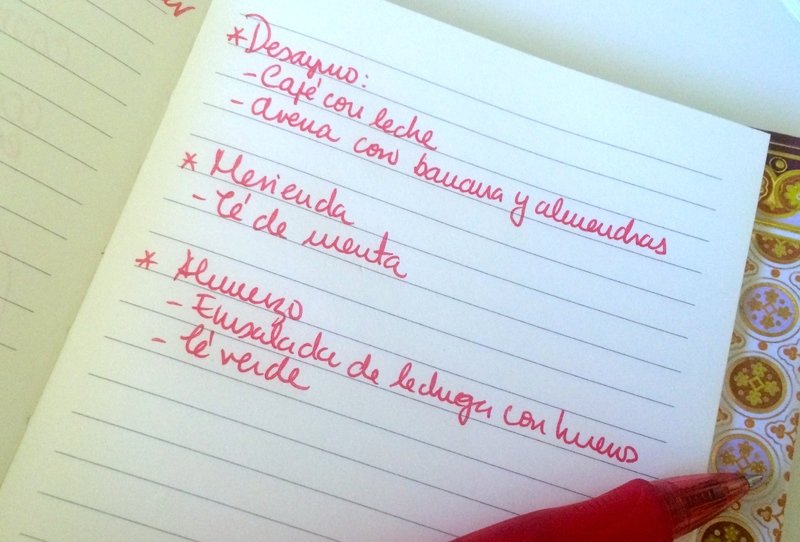 *Desayuno:
- Café con leche
- avena con banana y almendras
* Merienda
- té de menta
* Almuerzo
- Ensalada de lechuga con huevo
- té verde